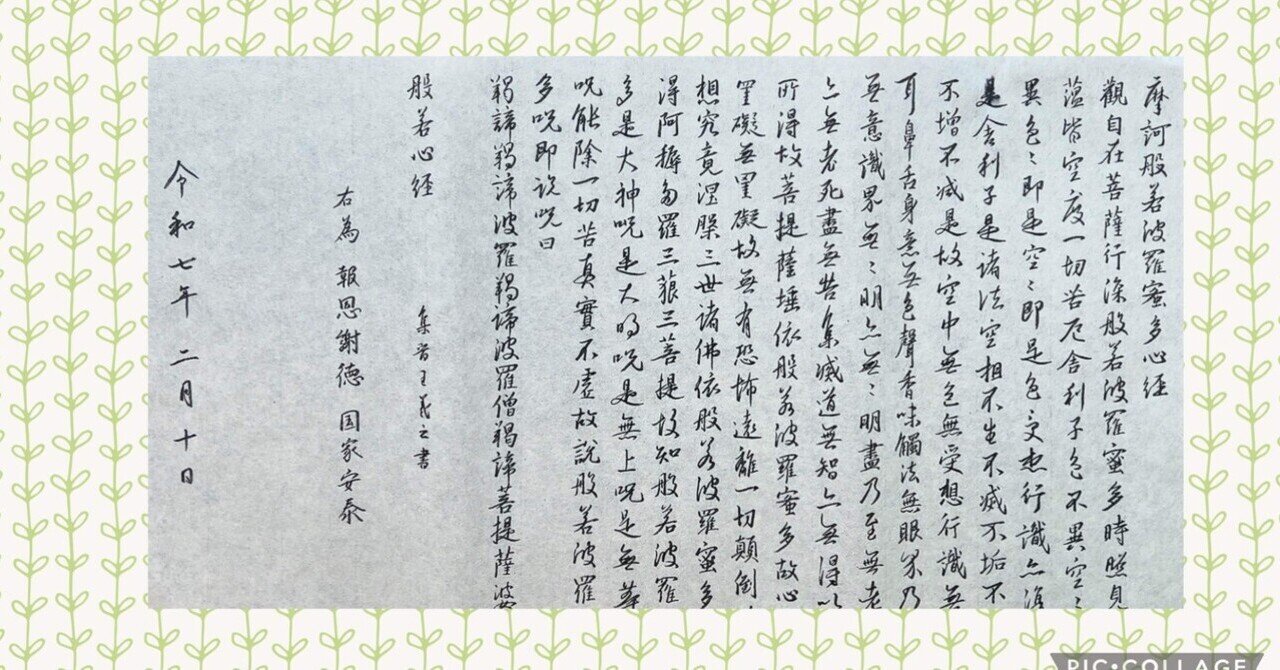 摩訶般若波羅蜜多心経
觀自在菩薩行深般若波羅蜜多時照見
蕰皆空度一切苦厄舎利子色不異空〻
異色〻即是空〻即是色受想行識亦復
是舎利子是諸法空相不生不滅不垢不
不増不减是故空中無色無受想行識無
耳鼻舌身意無色聲香味觸法無眼界乃
無意識界無〻明亦無〻明盡乃至無老
亦無老死盡無苦集滅道無智亦無得以
所得故菩提薩埵依般若波羅蜜多故心
罣礙無罣礙故無有恐怖遠離一切顛倒
想究竟涅槃三世諸佛依般若波羅蜜多
得阿耨多羅三藐三菩提故知般若波羅
多是大神咒是大明咒是無上咒是無等
咒能除一切苦真實不虚故説般若波羅
多咒即説咒曰
羯諦羯諦波羅羯諦波羅僧羯諦菩提薩婆
般若心経
集晋王羲之書
右為 報恩謝徳 国家安泰
令和七年 二月十日
PIC•COLLAGE